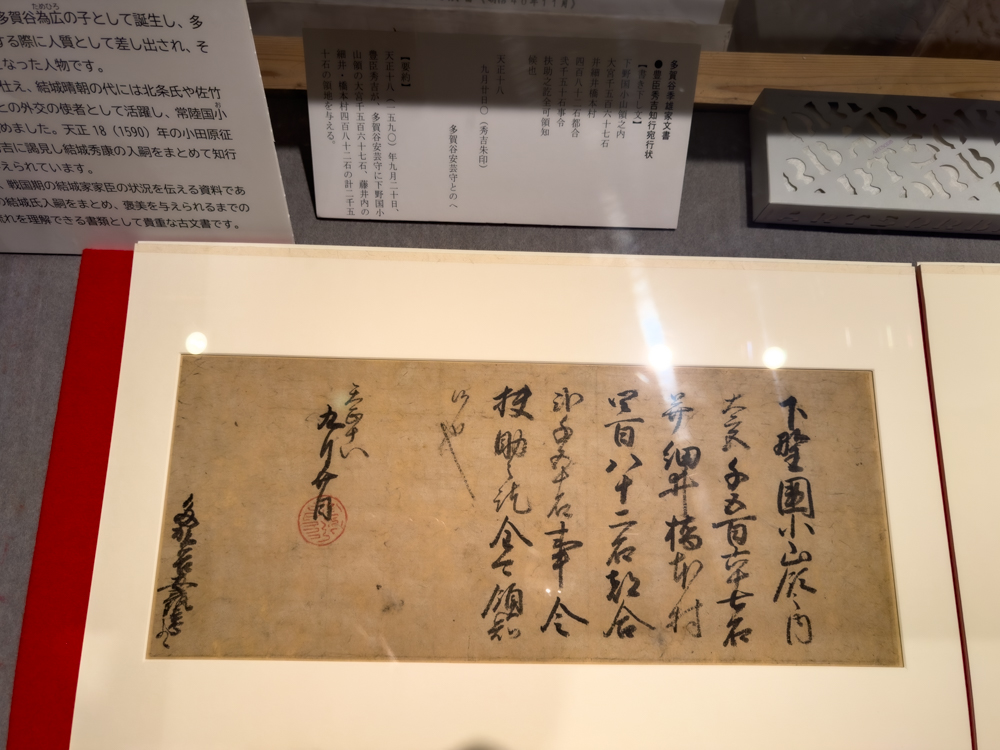 多賀谷為広の子として誕生し、多
ためひろ
する際に人質として差し出され、そ
なった人物です。
仕え、結城晴朝の代には北条氏や佐竹
との外交の使者として活躍し、常陸国小
お
めました。天正18（1590）年の小田原征
吉に謁見し結城秀康の入嗣をまとめて知行
えられています。
、戦国期の結城家家臣の状況を伝える資料であ
の結城氏入嗣をまとめ、褒美を与えられるまでの
流れを理解できる書類として貴重な古文書です。
多賀谷
家文書
●豊臣秀吉知行宛行状
【書き下し文】
下野国小山領之内
大宮千五百六十七石
并細井橋本村
四百八十二石都合
弐千五十石事令
扶助之訖全可領知
候也
天正十八
九月廿日（秀吉朱印）
多賀谷安芸守とのへ
【要約】
天正十八（一五九〇）年九月二十日、
豊臣秀吉が、多賀谷安芸守に下野国小
山領の大宮千五百六十七石、藤井内の
細井・橋本村四百八十二石の計二千五
十石の領地を与える。
下野国小山領之内
大宮千五百六十七石
并細井橋本村
四百八十二石都合
弐千五十石事令
扶助之訖全可領知
候也
天正十八
九月廿日
多賀谷安芸守とのへ